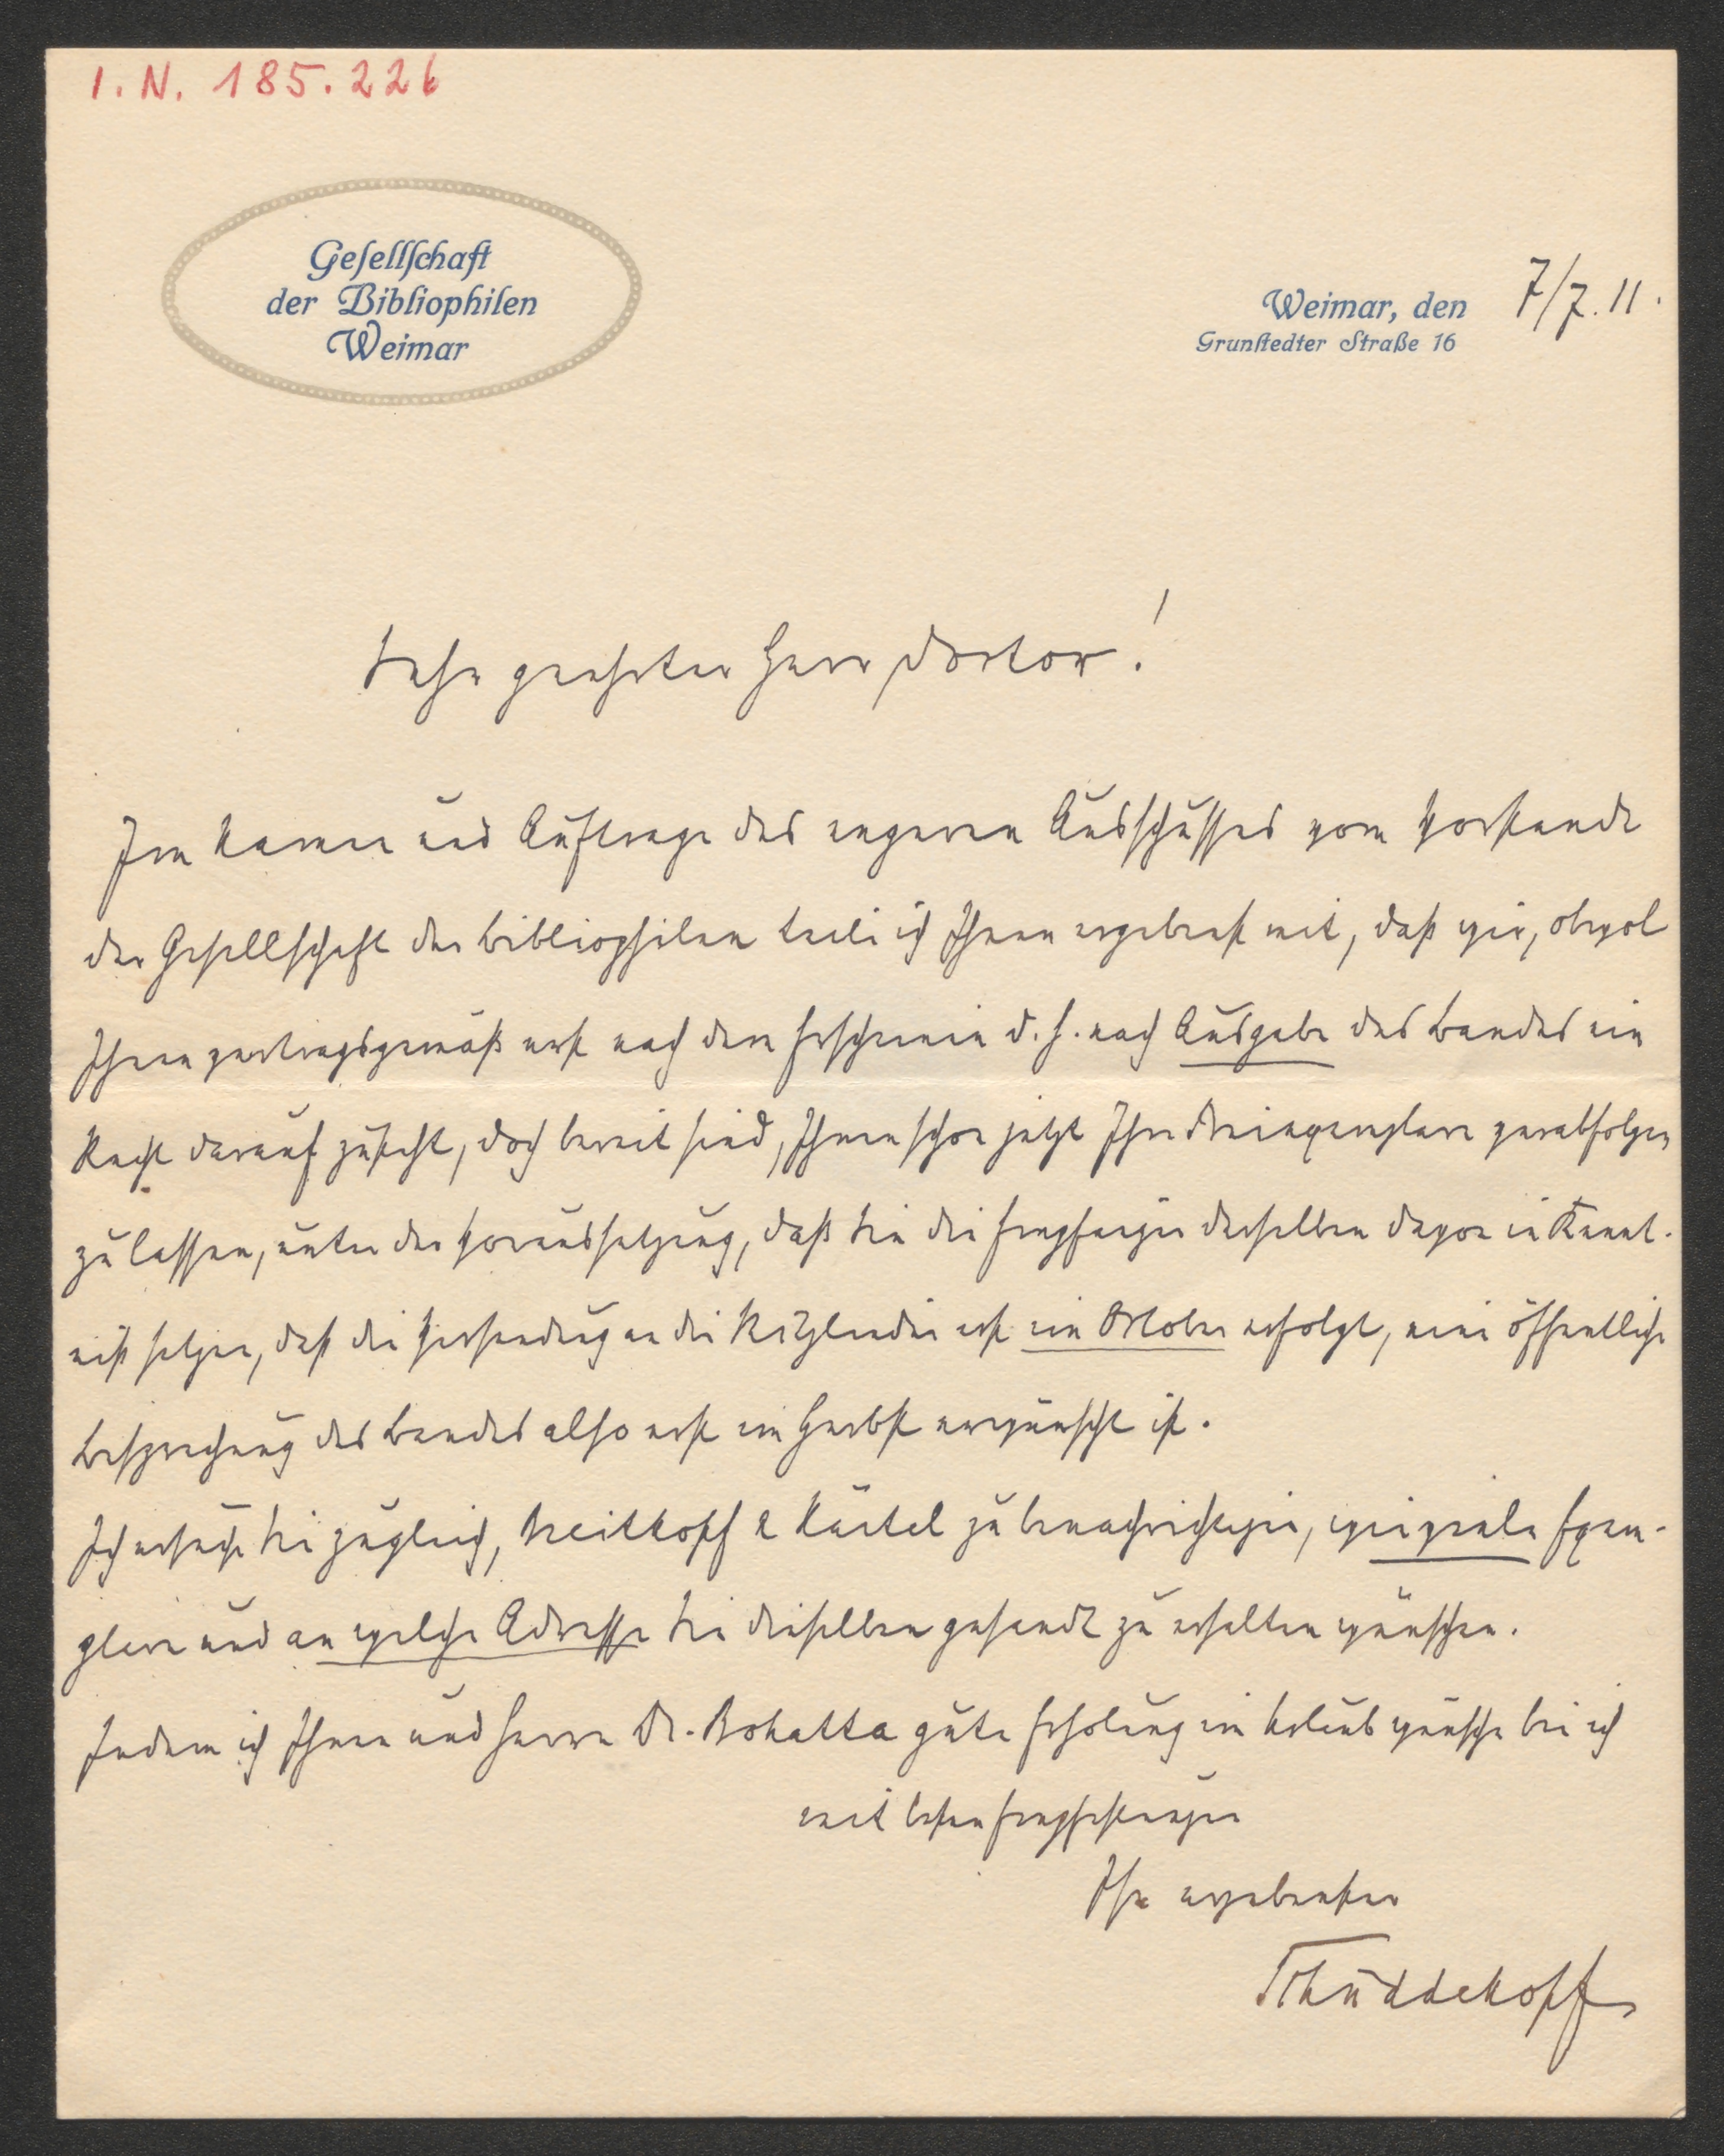 I. N. 185.226
Gesellschaft
der Bibliophilen
Weimar
Weimar, den 7/7. 11.
Grunstedter Straße 16
Sehr geehrter Herr Doctor!
Im Namen und Auftrage des engeren Ausschusses vom Vorstande
der Gesellschaft der Bibliophilen teile ich Ihnen ergebenst mit, daß wir, obwol
Ihnen vertragsgemäß erst nach dem Erscheinen d. h. nach Ausgabe des Bandes ein
Recht darauf zusteht, doch bereit sind, Ihnen schon jetzt Ihre Freiexemplare verabfolgen
zu lassen, unter der Voraussetzung, daß Sie die Empfänger derselben davon in Kennt-
niß setzen, daß die Versendung an die Mitglieder erst im October erfolgt, eine öffentliche
Besprechung des Bandes also erst im Herbst erwünscht ist.
Ich ersuche Sie zugleich, Breitkopf & Härtel zu benachrichtigen, wieviele Exem-
plare und an welche Adresse Sie dieselben gesandt zu erhalten wünschen.
Indem ich Ihnen und Herrn Dr. Bohatta gute Erholung im Urlaub wünsche bin ich
mit besten Empfehlungen
Ihr ergebenster
Schüddekopf